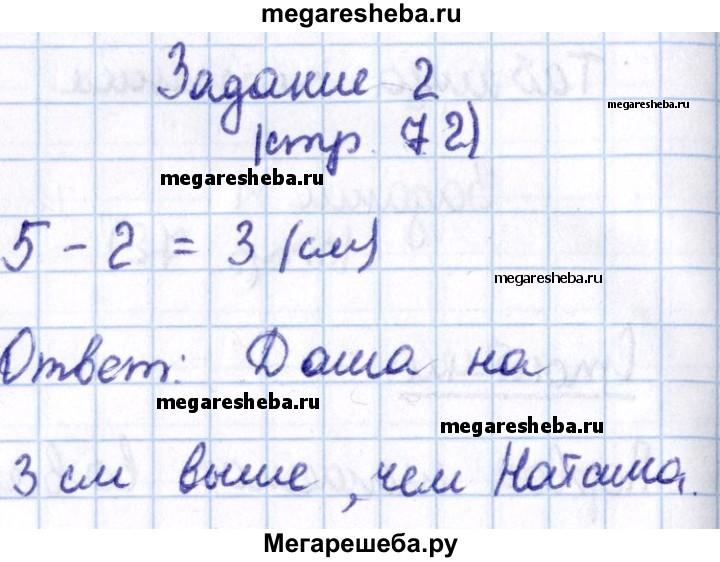 megaresheba.ru
Задание 2
megaresheba.ru
(стр. 72)
megaresheba.ru
5 - 2 = 3 (см)
megaresheba.ru
Ответ: Даша на
megaresheba.ru
megaresheba.ru
3 см выше, чем Наташа.
Мегарешеба.ру